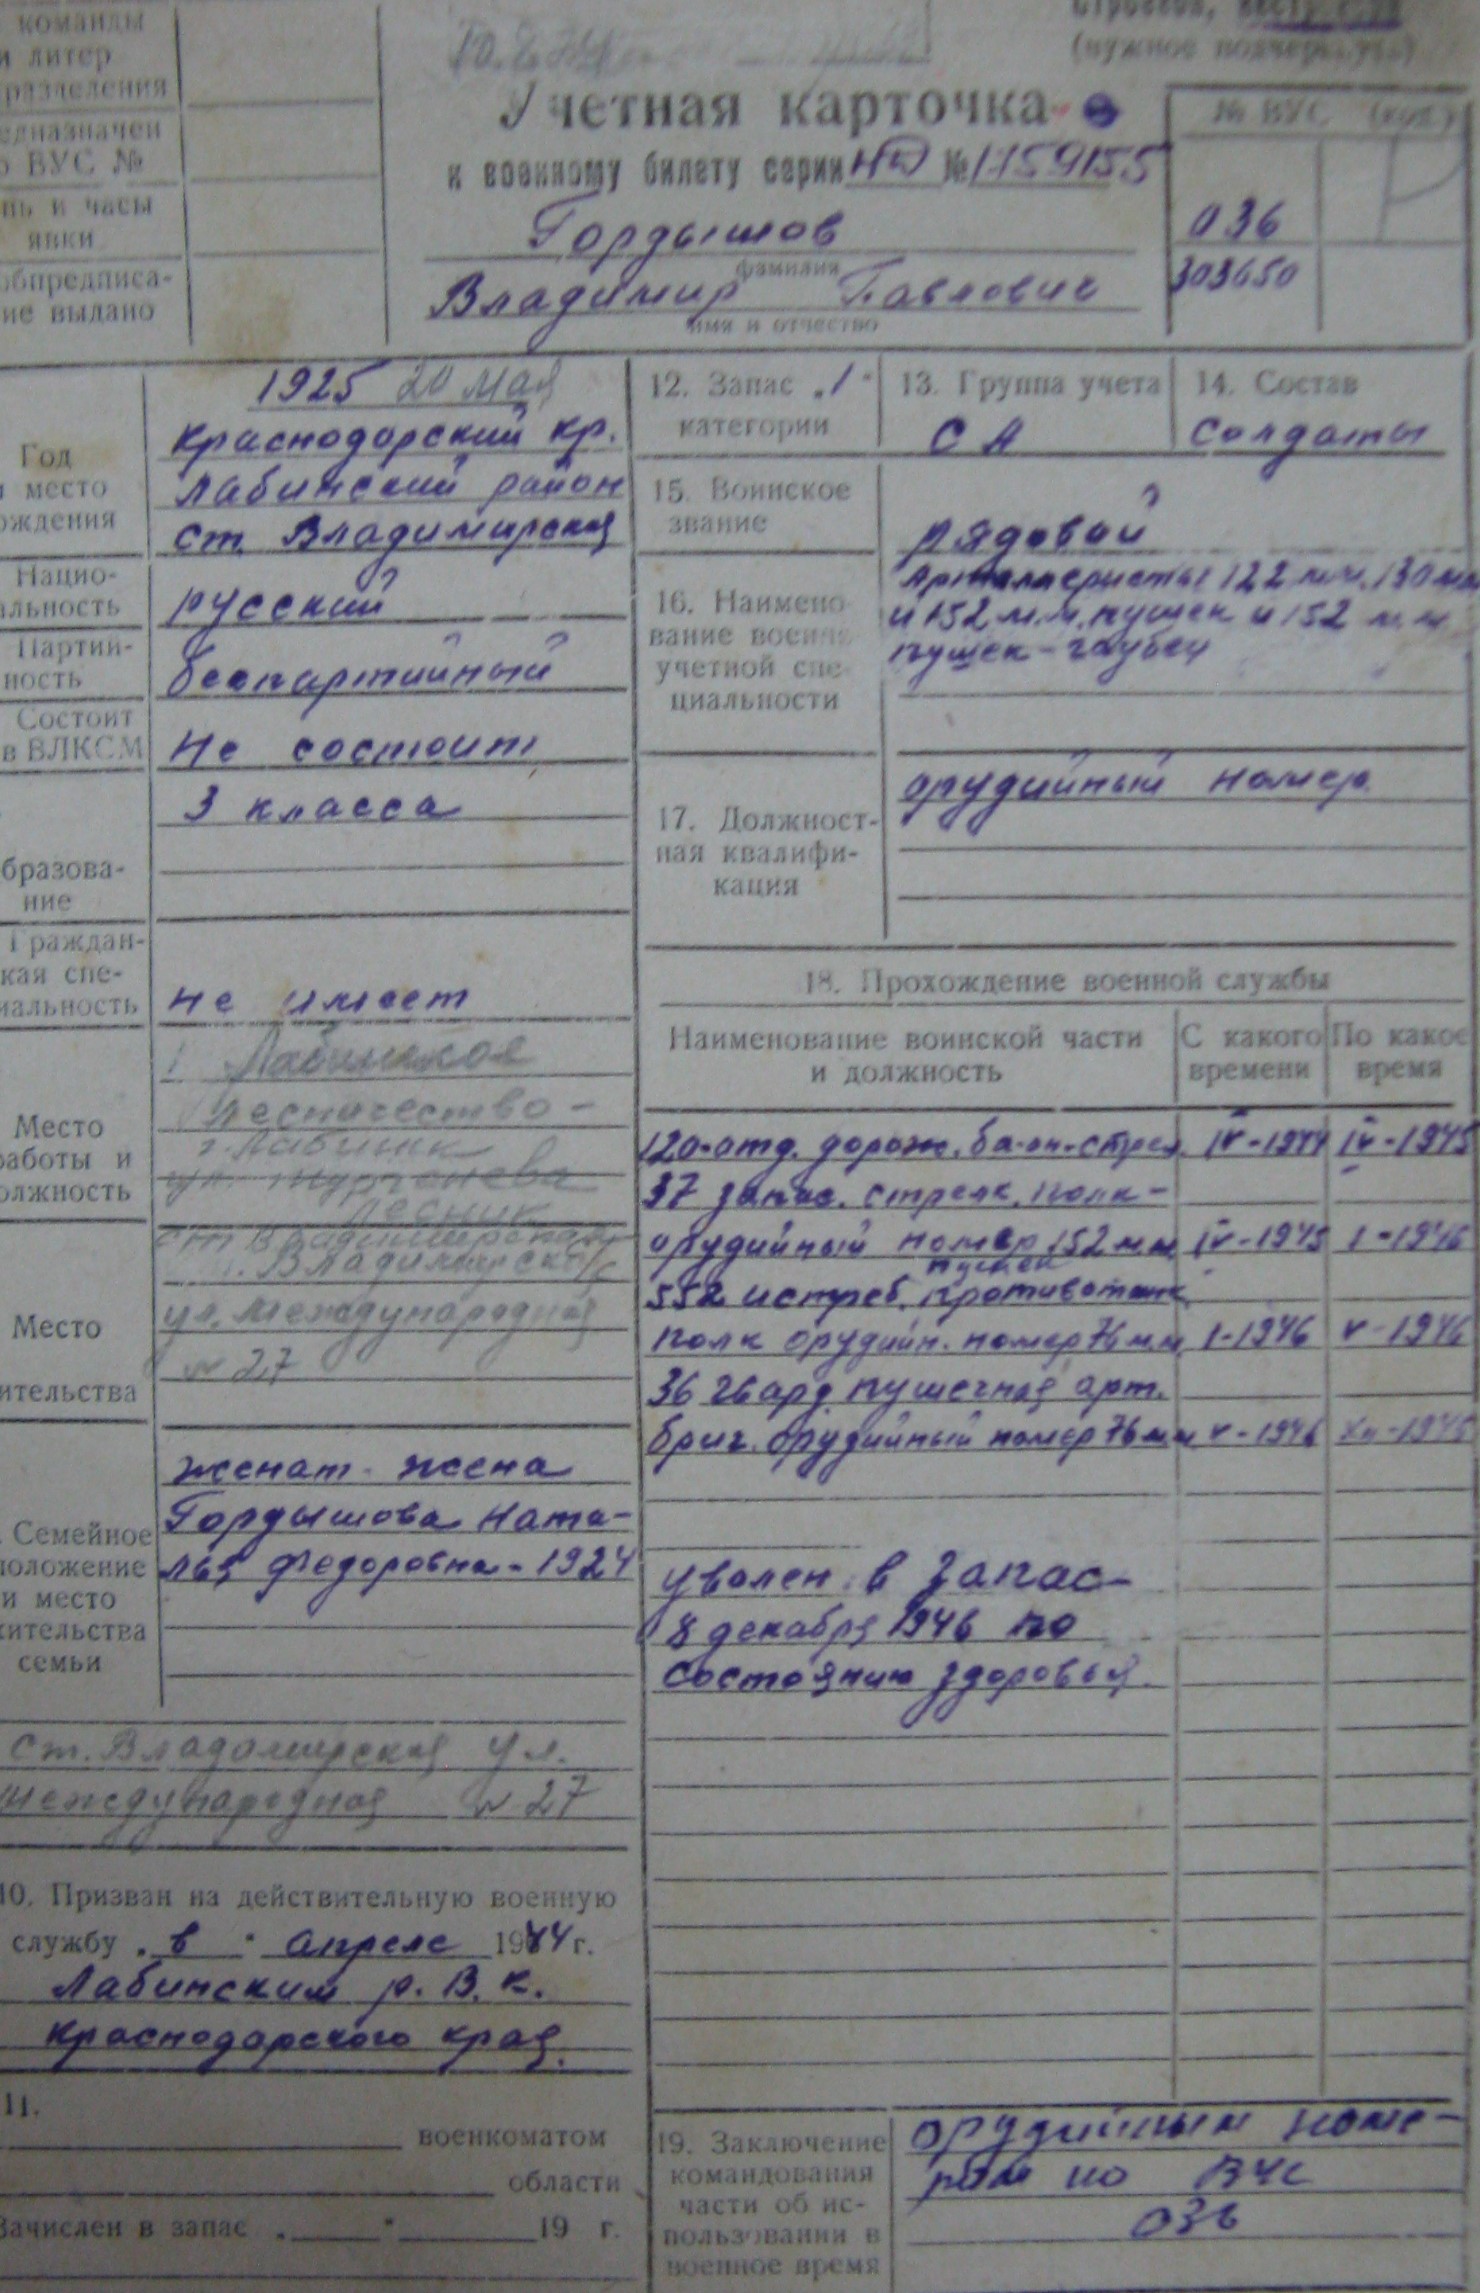 команды
и литер
разделения
едназначен
о ВУС №
нь и часы
явки
обпредписа-
ие выдано
(нужное подчеркнуть)
Учетная карточка
к военному билету серии НД № 1759155
Гордышов
фамилия
Владимир Павлович
имя и отчество
№ ВУС (код)
036
303650
Год
и место
ождения
1925 20 мая
Краснодарский кр.
Лабинский район
ст. Владимирская
Нацио-
альность
русский
Партий-
ность
беспартийный
Состоит
в ВЛКСМ
Не состоит
бразова-
ние
3 класса
Граждан-
кая спе-
иальность
не имеет
Место
работы и
олжность
Лабинское
лесничество -
г. Лабинск
лесник
Место
ительства
ст Владимирская
Владимирская
ул. Международная
№ 27
Семейное
положение
и место
жительства
семьи
женат. жена
Гордышова Ната-
лья Федоровна - 1924
ст. Владимирская ул.
Международная № 27
10. Призван на действительную военную
службу „ в " апреле 1944 г.
Лабинским р. В. К.
Краснодарского края.
11.
военкоматом
области
Зачислен в запас „ " 19 г.
12. Запас „1"
категории
13. Группа учета
СА
14. Состав
солдаты
15. Воинское
звание
рядовой
16. Наимено
вание военно
учетной спе
циальности
Артиллеристы 122 м.м. 130 м.м
и 152 м.м. пушек и 152 м.м
пушек-гаубиц
17. Должност-
ная квалифи-
кация
орудийный номер
18. Прохождение военной службы
Наименование воинской части
и должность
С какого
времени
По какое
время
120-отд. дорож. ба-он-стрел. IV-1944 IV-1945
37 запас. стрелк. полк-
орудийный номер 152 м.м IV-1945 I-1946
пушек
552 истреб. противотанк
полк орудийн. номер 76 м.м. I-1946 V-1946
36 гвард. пушечная арт.
бриг. орудийный номер 76 м.м V-1946 XII-1946
уволен в запас-
8 декабря 1946 по
состоянию здоровья.
19. Заключение
командования
части об ис-
пользовании в
военное время
орудийным номе-
ром по ВУС
036